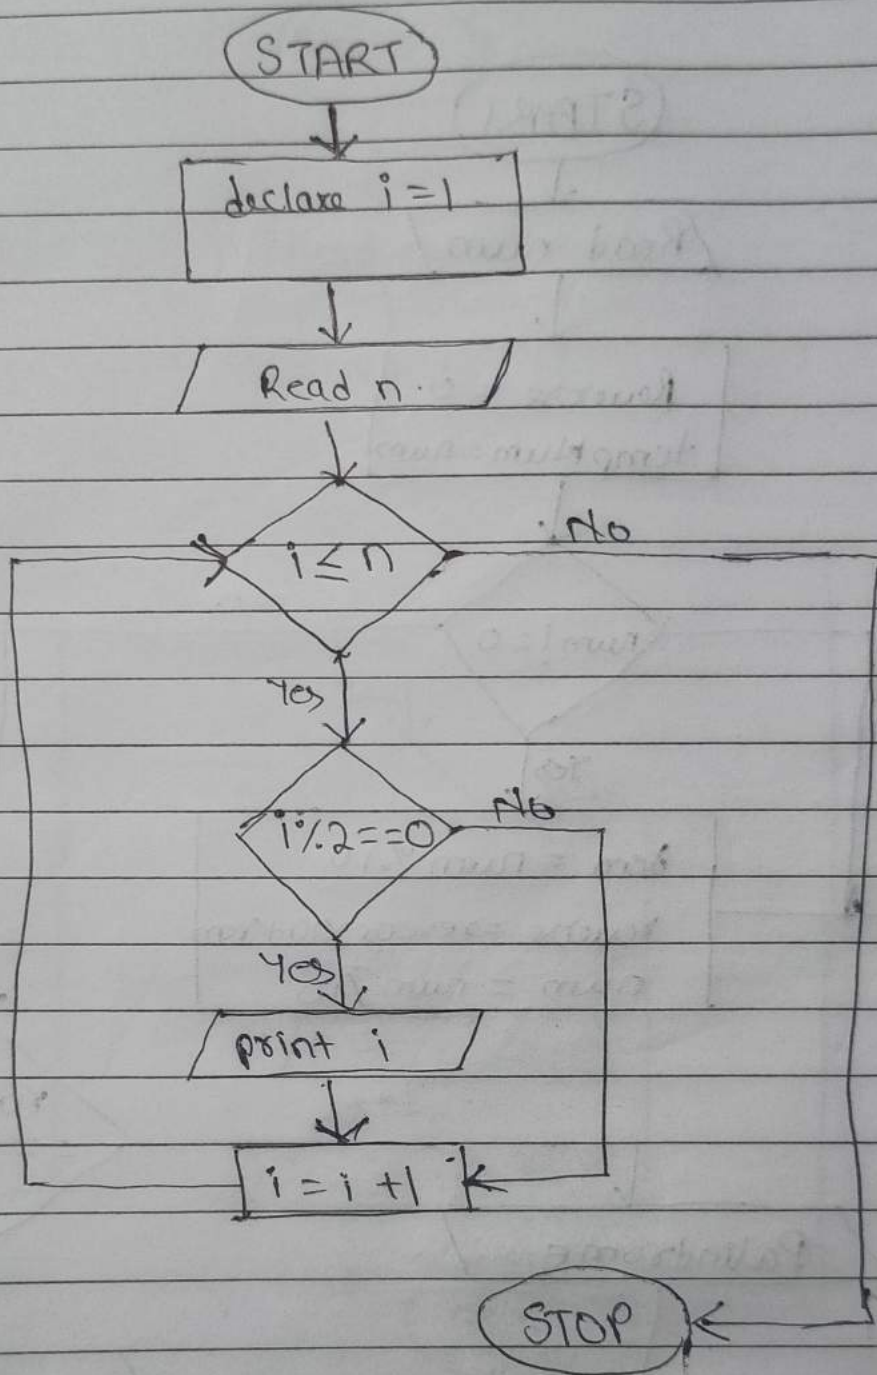 START
declare i = 1
Read n.
i ≤ n
No
Yes
i%2==0
No
Yes
print i
i = i + 1
STOP